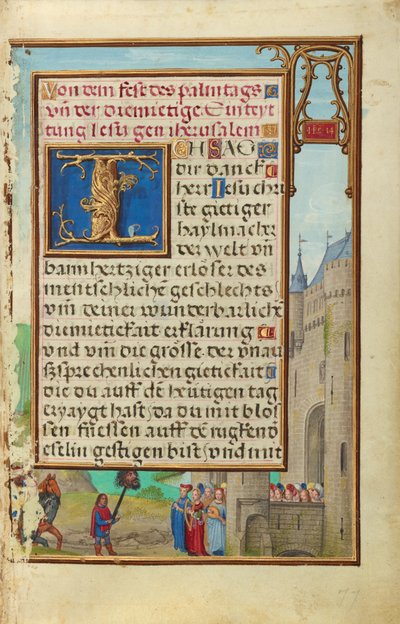 Von dem fest des palmtags
vn̄ der diemietige Einreyt
tung Iesu gen iherusalem
ICH SAG
dir danck
herr Iesu chri
ste gietiger
haylmacher
der welt vn̄
barmhertziger erlöser des
mentschlichē geschlechts
vm̄ deiner wunderbarlichē
diemietikait erklärung
vnd vm̄ die grösse der vnau
ßsprechenlichen gietikait
die du auff dē heutigen tag
erzaygt hast da du mit blos
sen fuessen auff dē rugken d
eselin gestigen bist vnd mit
77